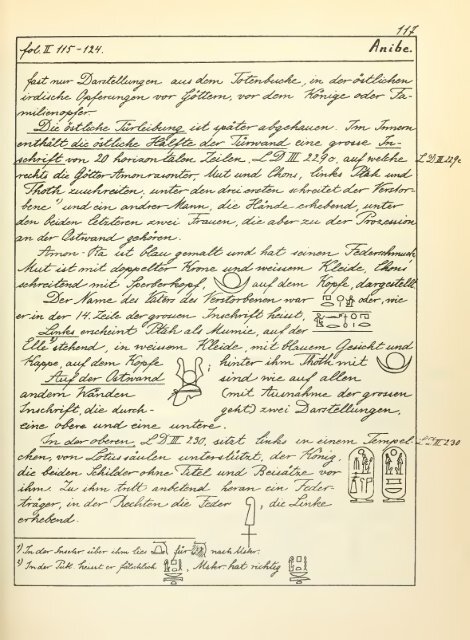 117
fol. II 115-124. Anibe.
fast nur Darstellungen aus dem Totenbuche, in der östlichen
irdische Opferungen vor Göttern, vor dem Könige oder Fa-
milienopfer.
Die östliche Türleibung ist später abgehauen. Im Innern
enthält die östliche Hälfte der Türwand eine grosse In-
schrift von 20 horizontalen Zeilen, LD III 229c, auf welche LD III 229c
rechts die Götter Amonrasonter, Mut und Chons, links Ptah und
Thoth zuschreiten, unter den drei ersten schreitet der Verstor-
bene ¹⁾ und ein andrer Mann, die Hände erhebend, unter
den beiden letzteren zwei Frauen, die aber zu der Prozession
an der Ostwand gehören.
Amon-Ra ist blau gemalt und hat seinen Federschmuck
Mut ist mit doppelter Krone und weissem Kleide, Chons
schreitend mit Sperberkopf, auf dem Kopfe, dargestellt.
Der Name des Vaters des Verstorbenen war oder, wie
er in der 14. Zeile der grossen Inschrift heisst,
Links erscheint Ptah als Mumie, auf der
Elle stehend, in weissem Kleide, mit blauem Gesicht und
Kappe, auf dem Kopfe ; hinter ihm Thoth mit
Auf der Ostwand sind wie auf allen
andern Wänden (mit Ausnahme der grossen
Inschrift, die durch- geht) zwei Darstellungen,
eine obere und eine untere.
In der oberen, LD III 230, sitzt links in einem Tempel- LD III 230
chen, von Lotussäulen unterstützt, der König,
die beiden Schilder ohne Titel und Beisätze vor
ihm. Zu ihm tritt anbetend heran ein Feder-
träger, in der Rechten die Feder , die Linke
erhebend.
¹⁾ In der Inschr. über ihm lies für nach Mskr.
²⁾ In der Publ. heisst er fälschlich , Mskr. hat richtig